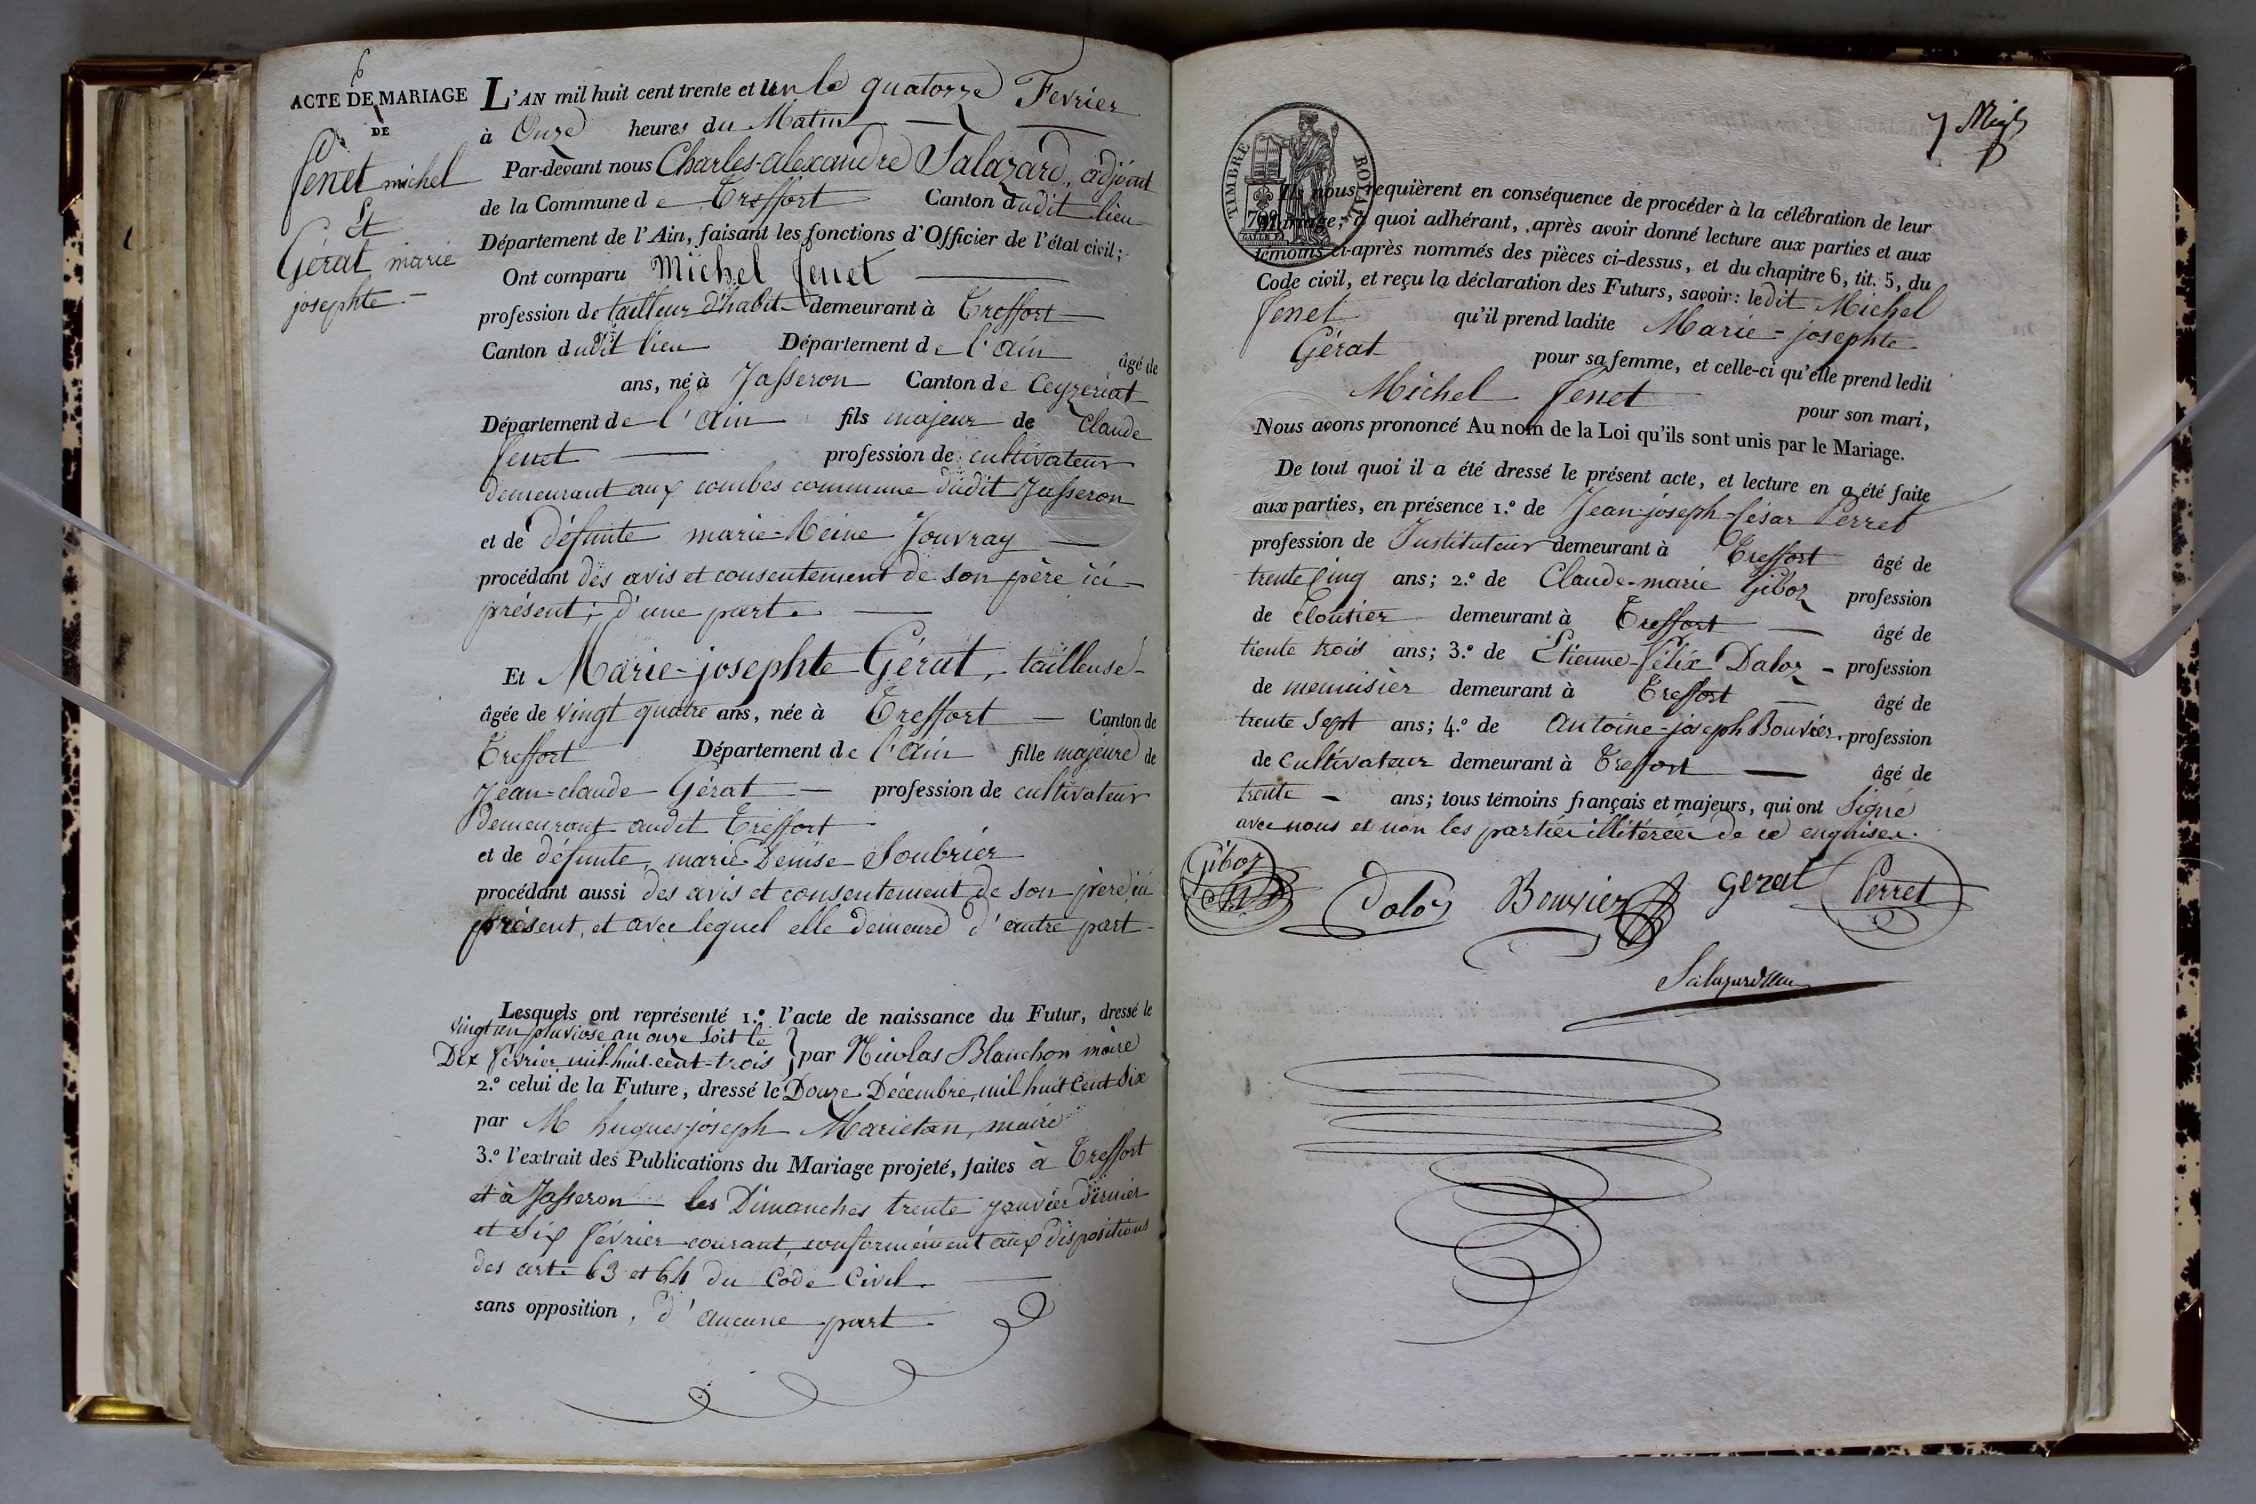 6
ACTE DE MARIAGE
DE
fenet michel
Et
Gérat marie
josephte
L'AN mil huit cent trente et Un le quatorze Fevrier
à Onze heures du Matin
Par-devant nous Charles-alexandre Salazard, adjoint
de la Commune de Treffort Canton dudit lieu
Département de l'Ain, faisant les fonctions d'Officier de l'état civil;
Ont comparu Michel fenet
profession de tailleur d'habit demeurant à Treffort
Canton dudit lieu Département de l'ain âgé de
ans, né à Jasseron Canton de Ceyzeriat
Département de l'ain fils majeur de Claude
fenet profession de cultivateur
demeurant aux combes commune dudit Jasseron
et de défunte marie-Reine Jouvray
procédant des avis et consentement de son père ici
présent; d'une part.
Et Marie-josephte Gérat, tailleuse
âgée de vingt quatre ans, née à Treffort Canton de
Treffort Département de l'ain fille majeure de
Jean-claude Gérat profession de cultivateur
demeurant audit Treffort
et de défunte marie Denise Soubrier
procédant aussi des avis et consentement de son père ici
présent, et avec lequel elle demeure d'autre part
Lesquels ont représenté 1.º l'acte de naissance du Futur, dressé le
vingt un pluviose an onze soit le
Dix février mil-huit-cent-trois par Nicolas Blanchon maire
2.º celui de la Future, dressé le Douze Décembre, mil huit Cent Six
par M hugues-joseph Marietan, maire
3.º l'extrait des Publications du Mariage projeté, faites à Treffort
et à Jasseron les Dimanches trente janvier dernier
et six février courant, conformément aux dispositions
des art. 63 et 64 du Code Civil.
sans opposition, d'aucune part
TIMBRE ROYAL
Ils nous requièrent en conséquence de procéder à la célébration de leur
Mariage; à quoi adhérant, après avoir donné lecture aux parties et aux
témoins ci-après nommés des pièces ci-dessus, et du chapitre 6, tit. 5, du
Code civil, et reçu la déclaration des Futurs, savoir: ledit Michel
fenet qu'il prend ladite Marie-josephte
Gérat pour sa femme, et celle-ci qu'elle prend ledit
Michel fenet pour son mari,
Nous avons prononcé Au nom de la Loi qu'ils sont unis par le Mariage.
De tout quoi il a été dressé le présent acte, et lecture en a été faite
aux parties, en présence 1.º de Jean-joseph-César Perret
profession de Instituteur demeurant à Treffort âgé de
trente Cinq ans; 2.º de Claude-marie Giboz profession
de cloutier demeurant à Treffort âgé de
trente trois ans; 3.º de Etienne-félix Daloz profession
de menuisier demeurant à Treffort âgé de
trente Sept ans; 4.º de Antoine-joseph Bouvier profession
de Cultivateur demeurant à Treffort âgé de
trente ans; tous témoins français et majeurs, qui ont Signé
avec nous et non les parties illitérées de ce enquises.
Giboz
Daloz Bouvier gerat Perret
Salazard